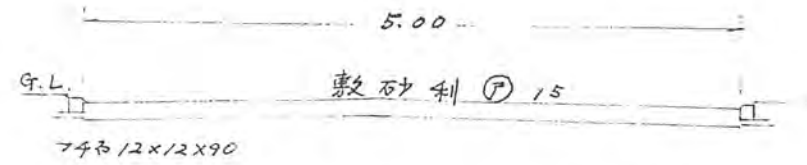 5.00
G.L.
敷砂利 ㋐ 15
フチ石 12×12×90